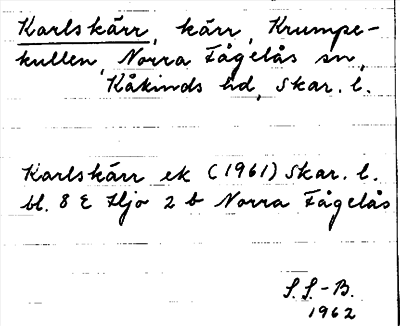 Karlskärr, kärr, Krumpe-
kullen, Norra Fågelås sn,
Kåkinds hd, Skar. l.
Karlskärr ek (1961) Skar. l.
bl. 8 E Hjo 2 b Norra Fågelås
S.S.-B.
1962